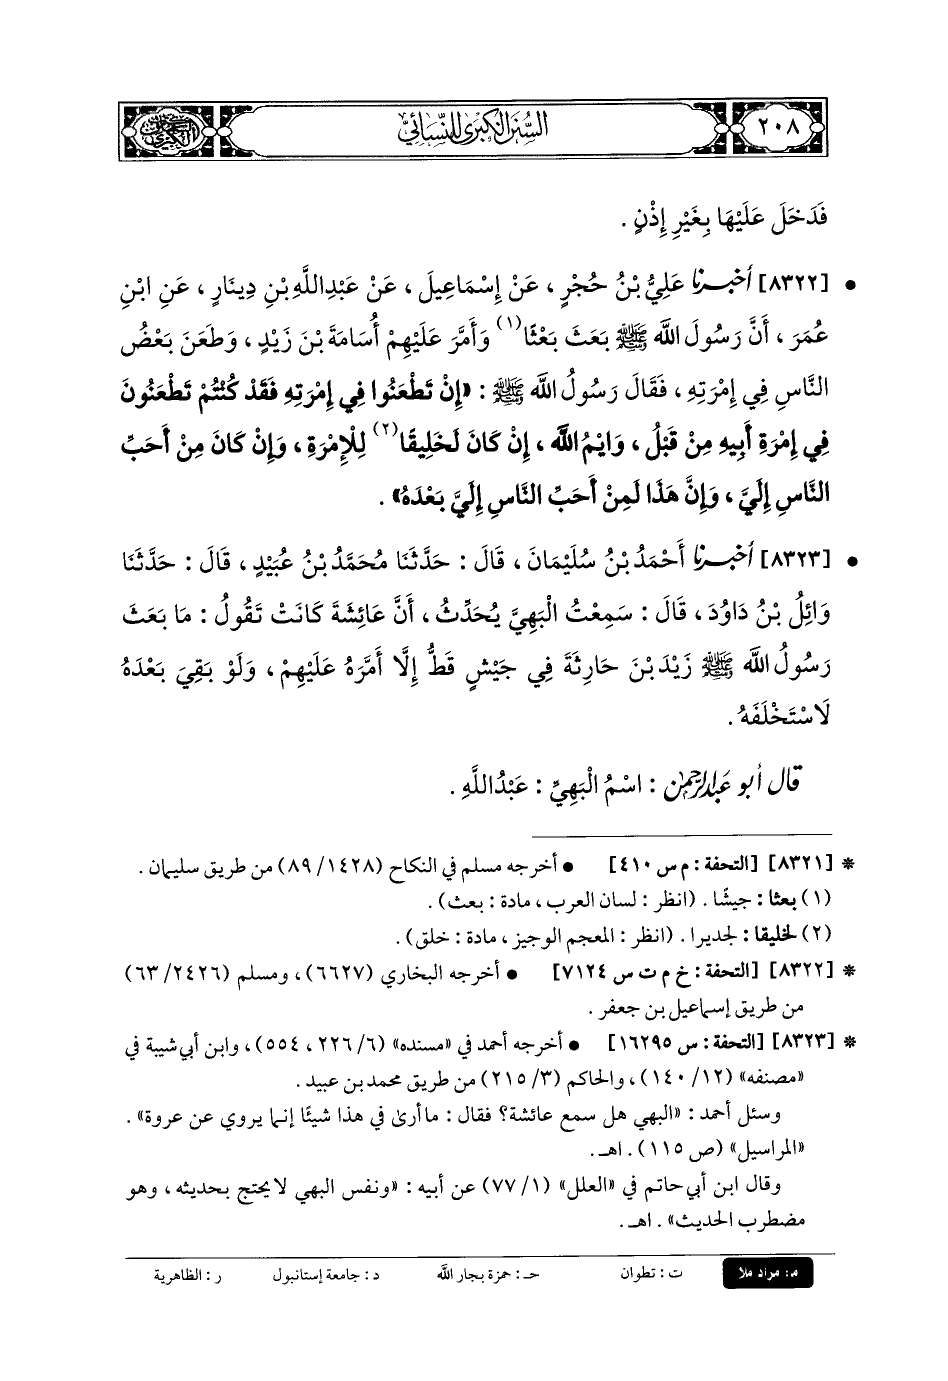 ٢٠٨
السُّنَنُ الكُبْرَى لِلنَّسَائِيِّ
فَدَخَلَ عَلَيْهَا بِغَيْرِ إِذْنٍ .
• [٨٣٢٢] أَخْبَرَنَا عَلِيُّ بْنُ حُجْرٍ ، عَنْ إِسْمَاعِيلَ ، عَنْ عَبْدِاللَّهِ بْنِ دِينَارٍ ، عَنِ ابْنِ
عُمَرَ ، أَنَّ رَسُولَ اللَّهِ ﷺ بَعَثَ بَعْثًا(١) وَأَمَّرَ عَلَيْهِمْ أُسَامَةَ بْنَ زَيْدٍ ، وَطَعَنَ بَعْضُ
النَّاسِ فِي إِمْرَتِهِ ، فَقَالَ رَسُولُ اللَّهِ ﷺ : «إِنْ تَطْعَنُوا فِي إِمْرَتِهِ فَقَدْ كُنْتُمْ تَطْعَنُونَ
فِي إِمْرَةِ أَبِيهِ مِنْ قَبْلُ ، وَايْمُ اللَّهِ ، إِنْ كَانَ لَخَلِيقًا(٢) لِلْإِمْرَةِ ، وَإِنْ كَانَ مِنْ أَحَبِّ
النَّاسِ إِلَيَّ ، وَإِنَّ هَذَا لَمِنْ أَحَبِّ النَّاسِ إِلَيَّ بَعْدَهُ» .
• [٨٣٢٣] أَخْبَرَنَا أَحْمَدُ بْنُ سُلَيْمَانَ ، قَالَ : حَدَّثَنَا مُحَمَّدُ بْنُ عُبَيْدٍ ، قَالَ : حَدَّثَنَا
وَائِلُ بْنُ دَاوُدَ ، قَالَ : سَمِعْتُ الْبَهِيَّ يُحَدِّثُ ، أَنَّ عَائِشَةَ كَانَتْ تَقُولُ : مَا بَعَثَ
رَسُولُ اللَّهِ ﷺ زَيْدَ بْنَ حَارِثَةَ فِي جَيْشٍ قَطُّ إِلَّا أَمَّرَهُ عَلَيْهِمْ ، وَلَوْ بَقِيَ بَعْدَهُ
لَاسْتَخْلَفَهُ .
قال أبو عبدالرحمن : اسْمُ الْبَهِيِّ : عَبْدُاللَّهِ .
* [٨٣٢١] [التحفة : م س ٤١٠] • أخرجه مسلم في النكاح (١٤٢٨/ ٨٩) من طريق سليمان .
(١) بعثا : جيشًا . (انظر : لسان العرب ، مادة : بعث) .
(٢) لخليقا : لجديرا . (انظر : المعجم الوجيز ، مادة : خلق) .
* [٨٣٢٢] [التحفة : خ م ت س ٧١٢٤] • أخرجه البخاري (٦٦٢٧) ، ومسلم (٢٤٢٦/ ٦٣)
من طريق إسماعيل بن جعفر .
* [٨٣٢٣] [التحفة : س ١٦٢٩٥] • أخرجه أحمد في «مسنده» (٦/ ٢٢٦ ، ٥٥٤) ، وابن أبي شيبة في
«مصنفه» (١٢/ ١٤٠) ، والحاكم (٣/ ٢١٥) من طريق محمد بن عبيد .
وسئل أحمد : «البهي هل سمع عائشة؟ فقال : ما أرى في هذا شيئًا إنما يروي عن عروة» .
«المراسيل» (ص ١١٥) . اهـ .
وقال ابن أبي حاتم في «العلل» (١/ ٧٧) عن أبيه : «ونفس البهي لا يحتج بحديثه ، وهو
مضطرب الحديث» . اهـ .
م : مراد ملا ت : تطوان حـ : حمزة بجار الله د : جامعة إستانبول ر : الظاهرية